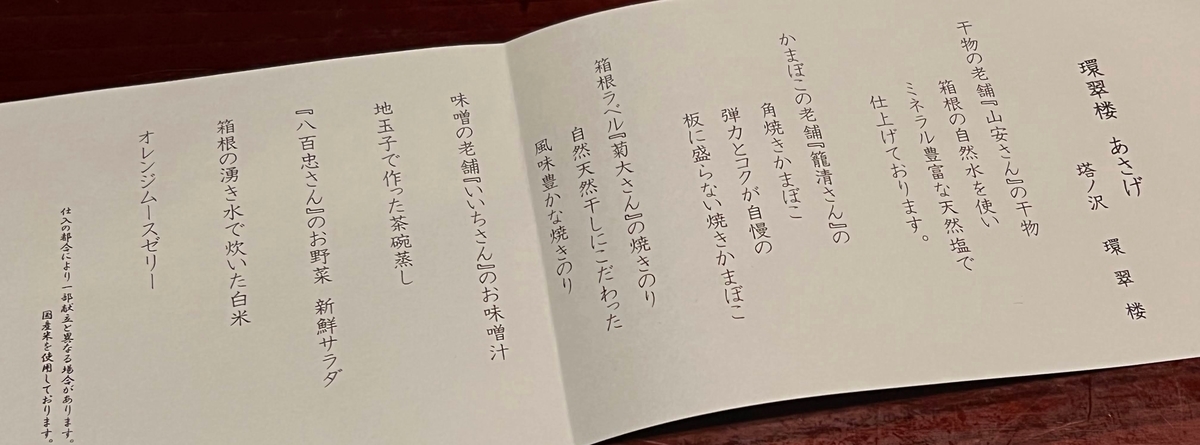 環翠楼 あさげ
塔ノ沢 環翠楼
干物の老舗『山安さん』の干物
箱根の自然水を使い
ミネラル豊富な天然塩で
仕上げております。
かまぼこの老舗『籠清さん』の
角焼きかまぼこ
弾力とコクが自慢の
板に盛らない焼きかまぼこ
箱根ラベル『菊大さん』の焼きのり
自然天然干しにこだわった
風味豊かな焼きのり
味噌の老舗『いいちさん』のお味噌汁
地玉子で作った茶碗蒸し
『八百忠さん』のお野菜 新鮮サラダ
箱根の湧き水で炊いた白米
オレンジムースゼリー
仕入の都合により一部献立と異なる場合があります。
国産米を使用しております。